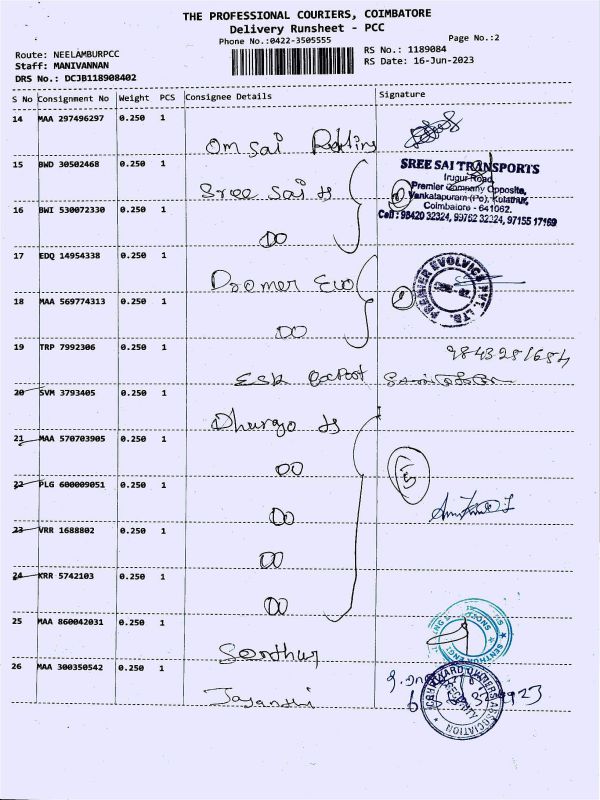 THE PROFESSIONAL COURIERS, COIMBATORE
Delivery Runsheet - PCC
Phone No.:0422-3505555
Page No.:2
Route: NEELAMBURPCC
RS No.: 1189084
Staff: MANIVANNAN
RS Date: 16-Jun-2023
DRS No.: DCJB118908402
S No Consignment No Weight PCS Consignee Details Signature
14 MAA 297496297 0.250 1
Om Sai
15 BWD 30502468 0.250 1
Sree Sai
SREE SAI TRANSPORTS
Irugur Road,
Premier Company Opposite,
Venkatapuram (Po), Kulathur,
Coimbatore - 641062.
Cell : 98420 32324, 99762 32324, 97155 17169
16 BWI 530072330 0.250 1
DO
17 EDQ 14954338 0.250 1
Evo
PREMIER EVOLVICS PVT. LTD.
18 MAA 569774313 0.250 1
DO
19 TRP 7992306 0.250 1
9843281684
20 SVM 3793405 0.250 1
21 MAA 570703905 0.250 1
DO
5
22 PLG 600009051 0.250 1
DO
23 VRR 1688802 0.250 1
DO
24 KRR 5742103 0.250 1
DO
25 MAA 860042031 0.250 1
Senthur
26 MAA 300350542 0.250 1
Jayanthi